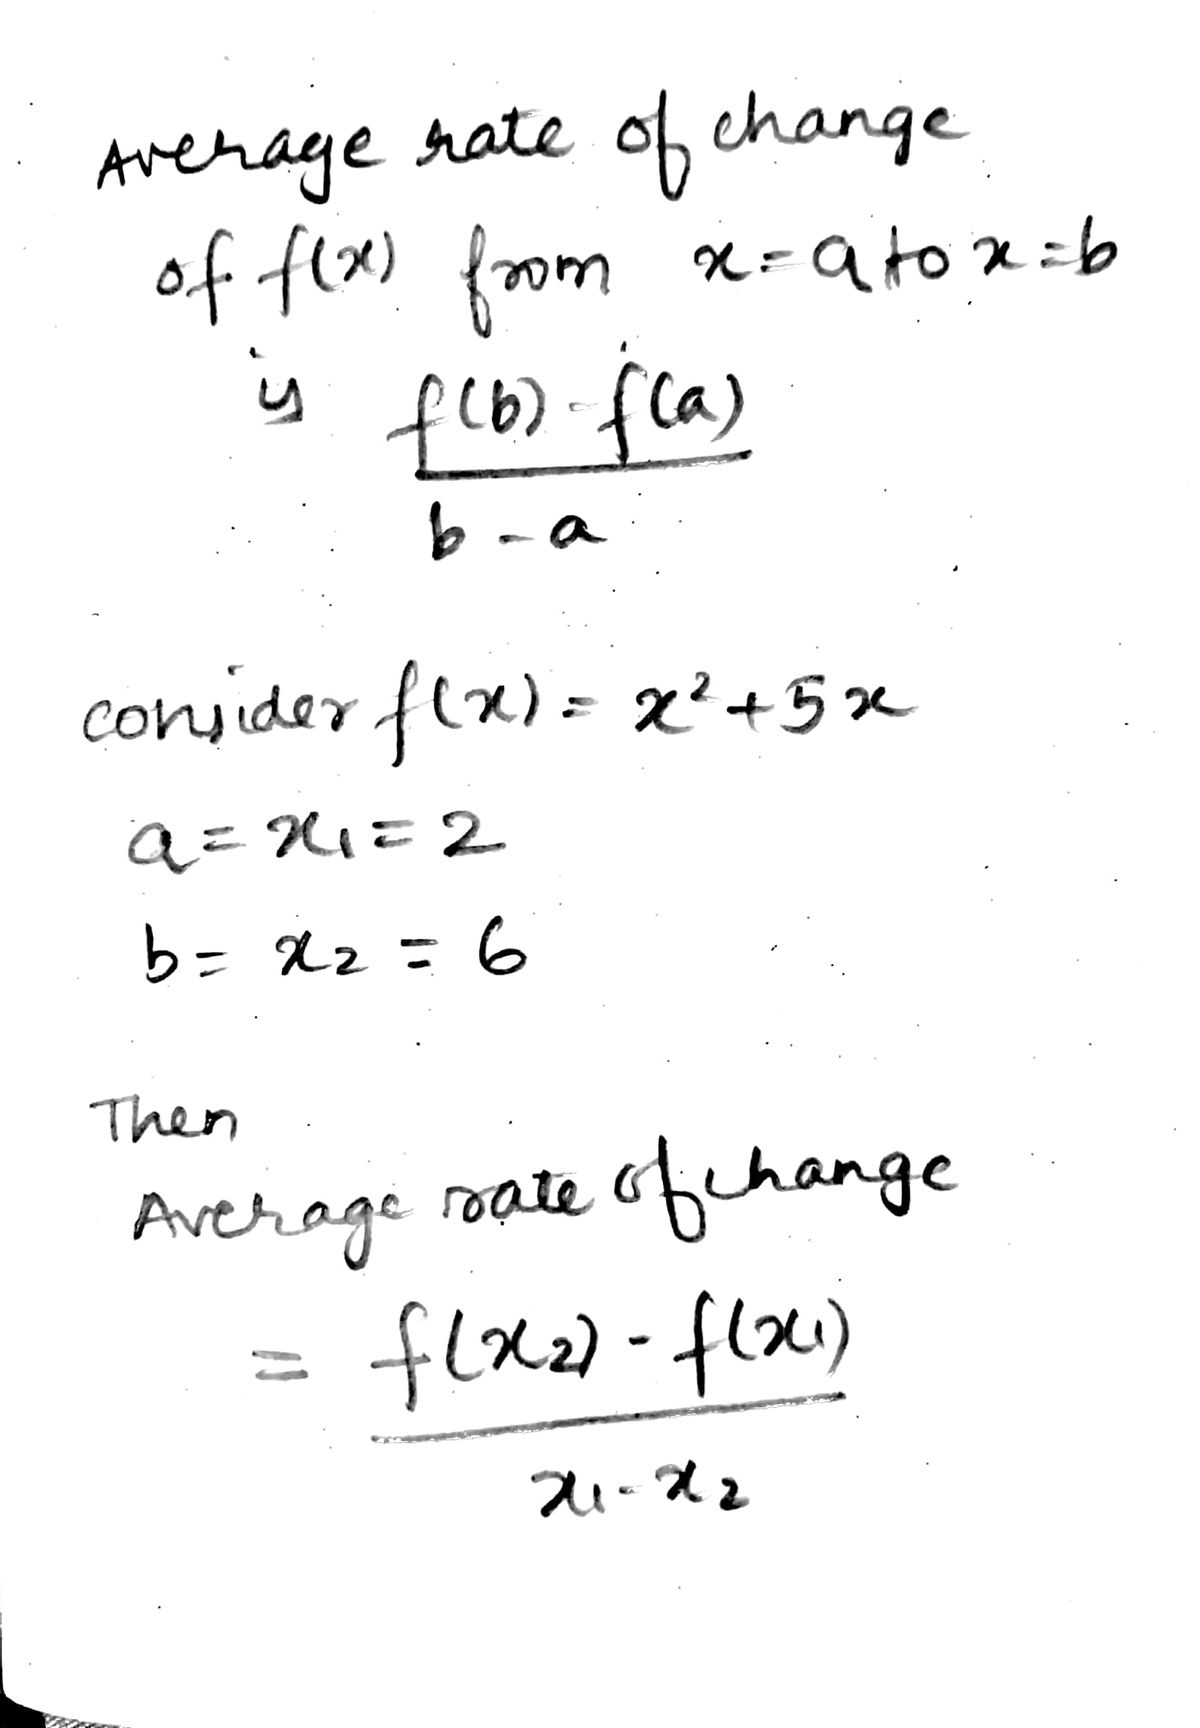 Average rate of change
of f(x) from x = a to x = b
is f(b) - f(a)
b - a
consider f(x) = x² + 5x
a = x₁ = 2
b = x₂ = 6
Then
Average rate of change
= f(x₂) - f(x₁)
x₁ - x₂